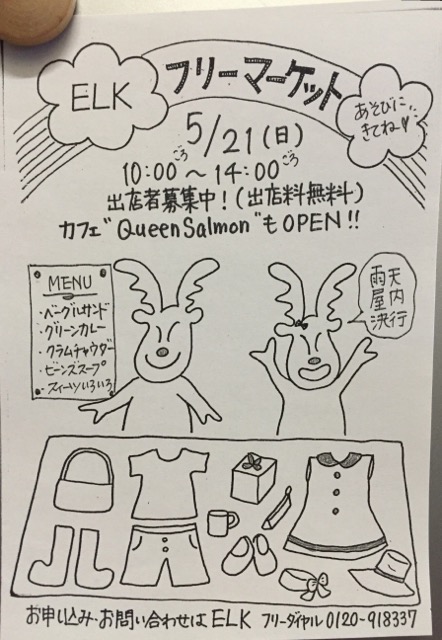 ELK
フリーマーケット
あそびに
きてね♡
5/21(日)
10:00ごろ〜14:00ごろ
出店者募集中!(出店料無料)
カフェ"Queen Salmon"もOPEN!!
MENU
・ベーグルサンド
・グリーンカレー
・クラムチャウダー
・ビーンズスープ
・スイーツいろいろ
雨天
屋内
決行
お申し込み・お問い合わせは ELK フリーダイヤル 0120-918337